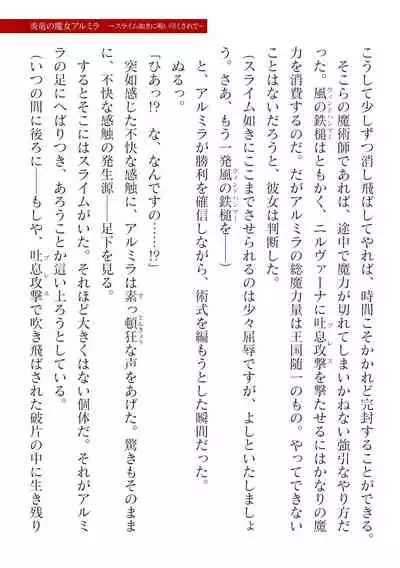 炎竜の魔女アルミラ　～スライム如きに喰い尽くされて～
こうして少しずつ消し飛ばしてやれば、時間こそかかれど完封することができる。
そこらの魔術師であれば、途中で魔力が切れてしまいかねない強引なやり方だ
った。風の鉄槌はともかく、ニルヴァーナに吐息攻撃を撃たせるにはかなりの魔
力を消費するのだ。だがアルミラの総魔力量は王国随一のもの。やってできない
ことはないだろうと、彼女は判断した。
（スライム如きにここまでさせられるのは少々屈辱ですが、よしといたしましょ
う。さあ、もう一発風の鉄槌を――）
と、アルミラが勝利を確信しながら、術式を編もうとした瞬間だった。
ぬるっ。
「ひあっ!?　な、なんですの……!?」
突如感じた不快な感触に、アルミラは素っ頓狂な声をあげた。驚きもそのまま
に、不快な感触の発生源――足下を見る。
するとそこにはスライムがいた。それほど大きくはない個体だ。それがアルミ
ラの足にへばりつき、あろうことか這い上ろうとしている。
（いつの間に後ろに――もしや、吐息攻撃で吹き飛ばされた破片の中に生き残り